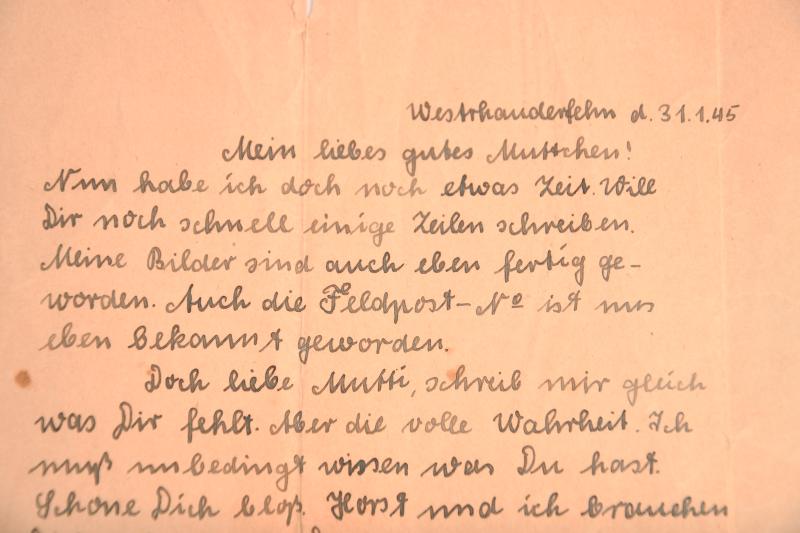 Westrhauderfehn d. 31.1.45
Mein liebes gutes Muttchen!
Nun habe ich doch noch etwas Zeit. Will
Dir noch schnell einige Zeilen schreiben.
Meine Bilder sind auch eben fertig ge-
worden. Auch die Feldpost-No ist uns
eben bekannt geworden.
Doch liebe Mutti, schreib mir gleich
was Dir fehlt. Aber die volle Wahrheit. Ich
muß unbedingt wissen was Du hast.
Schone Dich bloß. Horst und ich brauchen